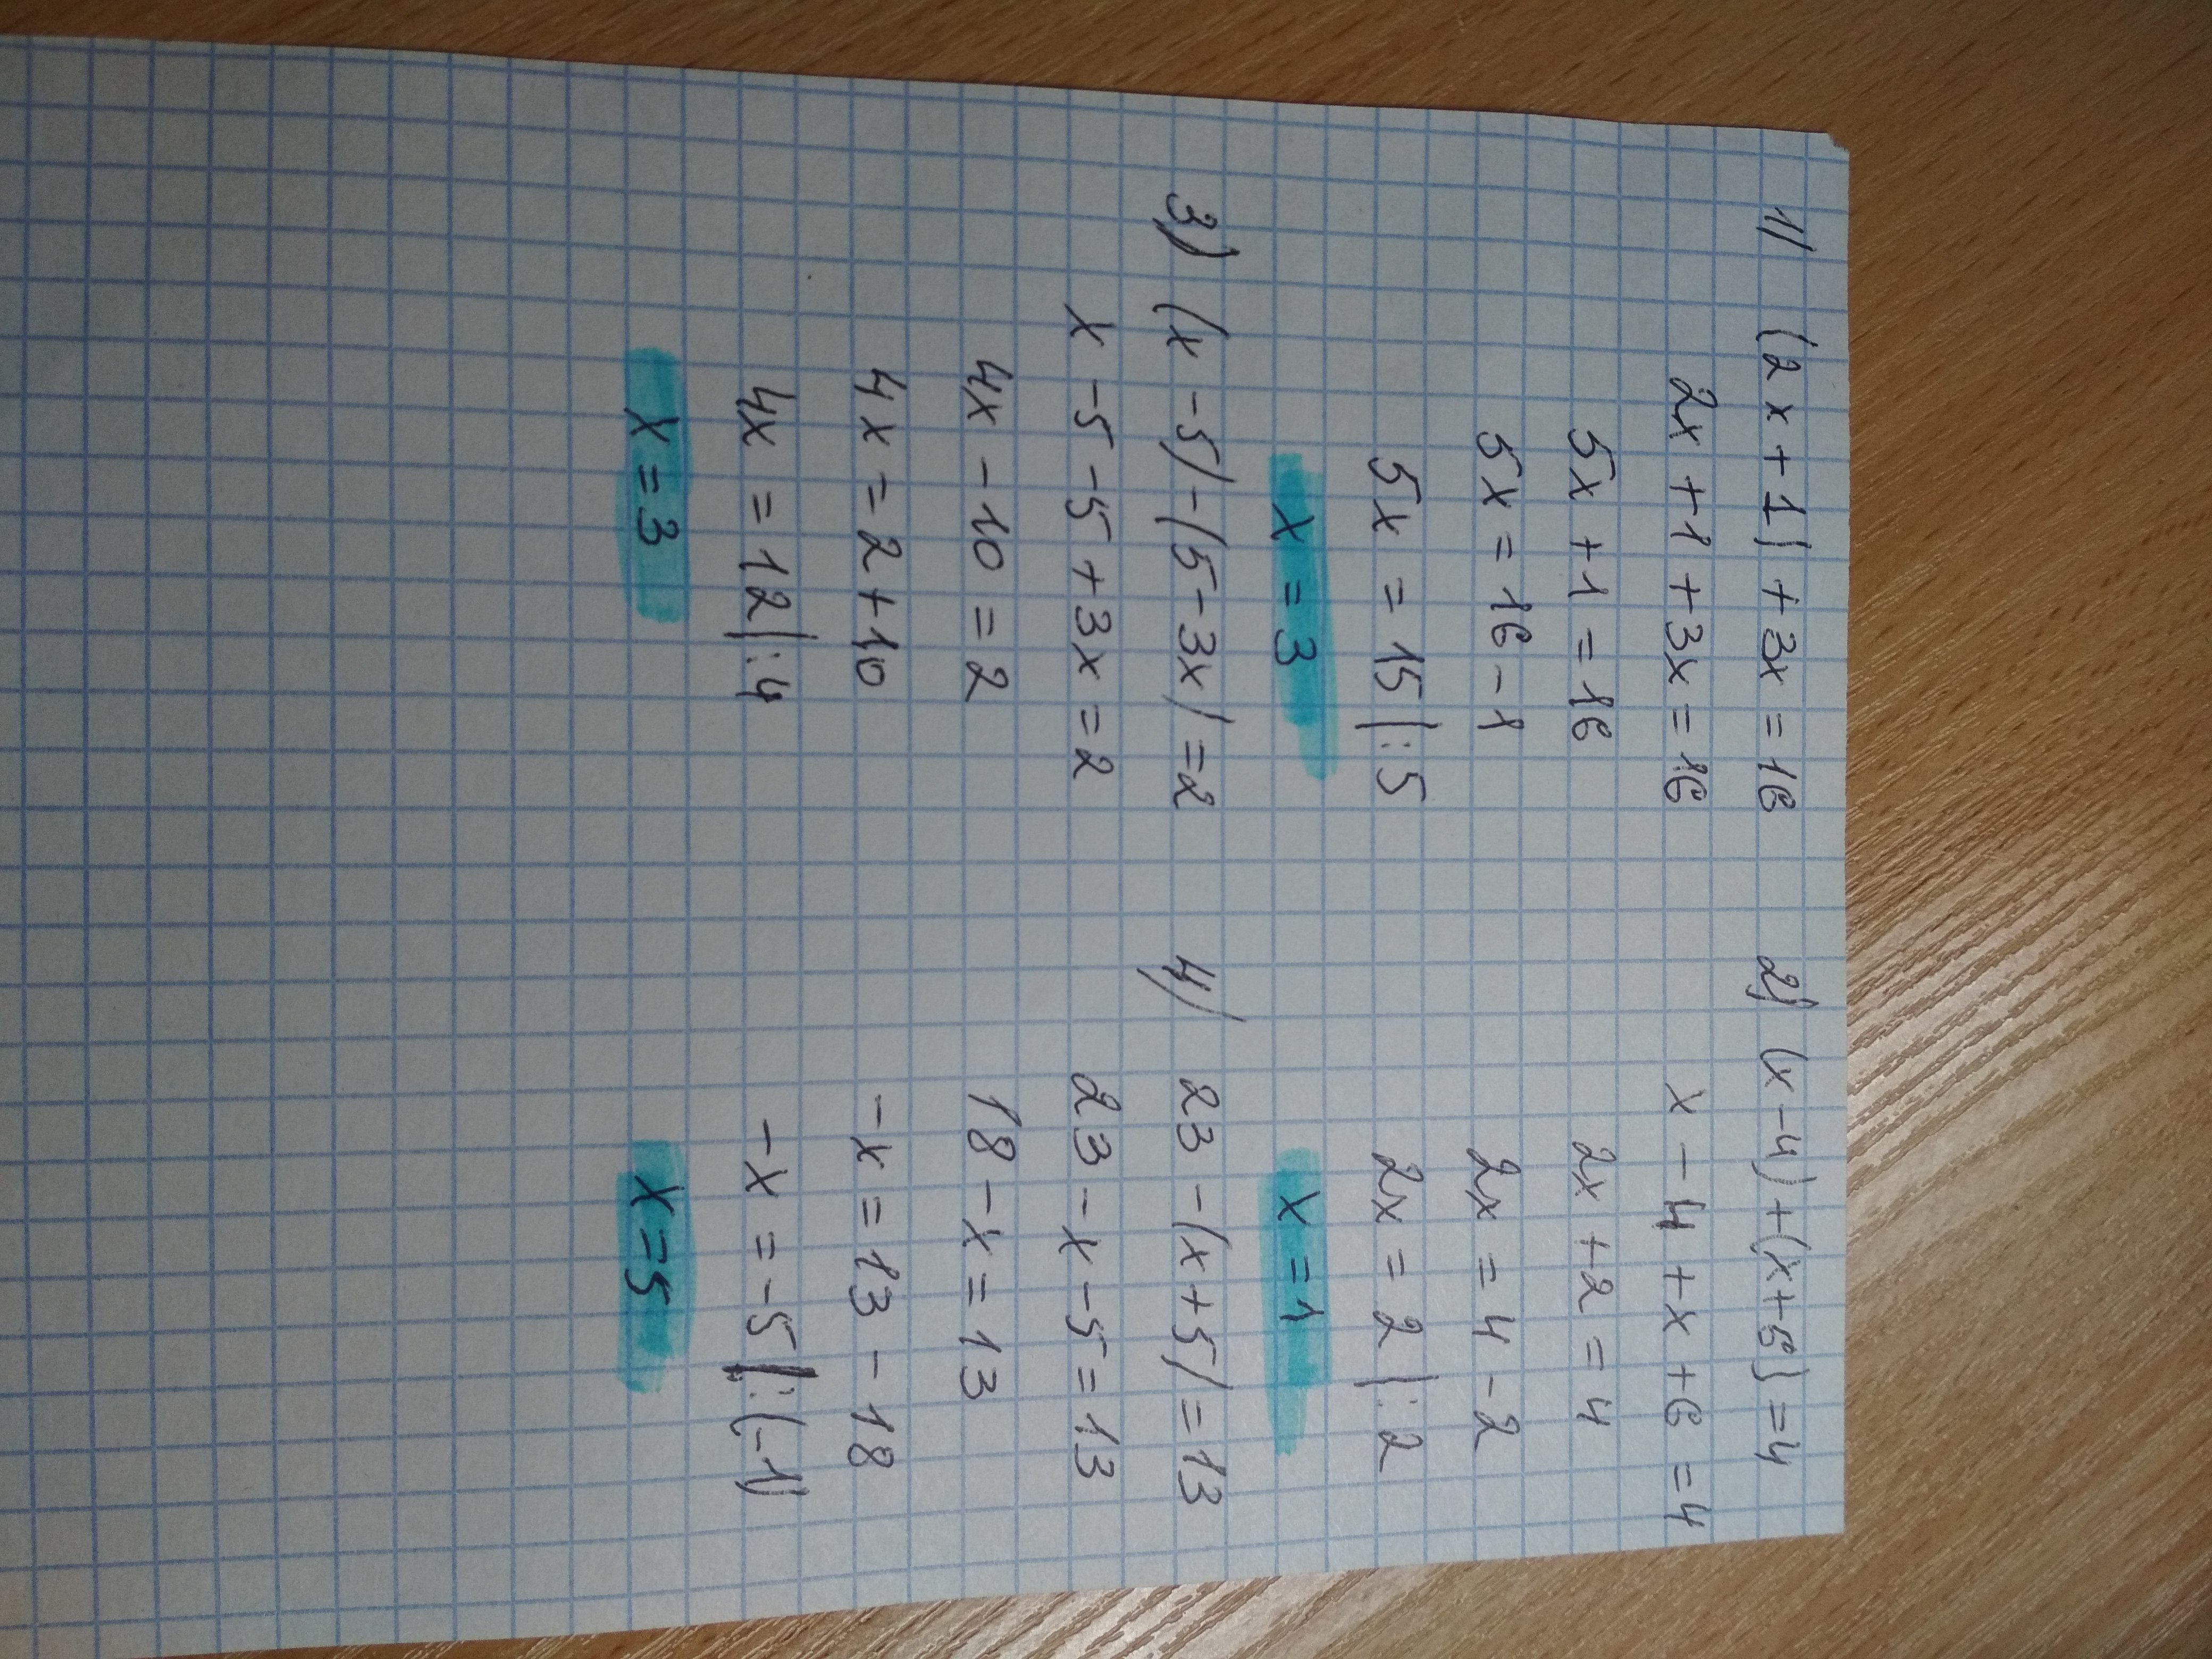 1) (2x+1)+3x=16
2x+1+3x=16
5x+1=16
5x=16-1
5x=15|:5
x=3
2) (x-4)+(x+6)=4
x-4+x+6=4
2x+2=4
2x=4-2
2x=2|:2
x=1
3) (x-5)-(5-3x)=2
x-5-5+3x=2
4x-10=2
4x=2+10
4x=12|:4
x=3
4) 23-(x+5)=13
23-x-5=13
18-x=13
-x=13-18
-x=-5|:(-1)
x=5